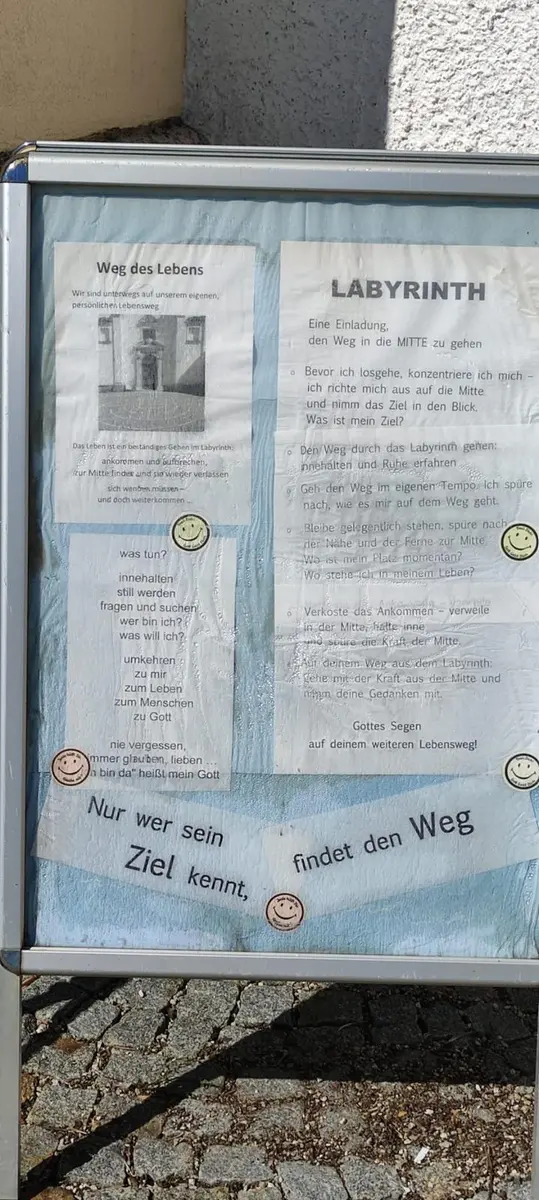 Weg des Lebens
Wir sind unterwegs auf unserem eigenen,
persönlichen Lebensweg
Das Leben ist ein beständiges Gehen im Labyrinth:
ankommen und aufbrechen,
zur Mitte finden und sie wieder verlassen
sich wenden müssen –
und doch weiterkommen ...
was tun?
innehalten
still werden
fragen und suchen
wer bin ich?
was will ich?
umkehren
zu mir
zum Leben
zum Menschen
zu Gott
nie vergessen,
mmer glauben, lieben ...
n bin da" heißt mein Gott
LABYRINTH
Eine Einladung,
den Weg in die MITTE zu gehen
Bevor ich losgehe, konzentriere ich mich –
ich richte mich aus auf die Mitte
und nimm das Ziel in den Blick.
Was ist mein Ziel?
Den Weg durch das Labyrinth gehen:
innehalten und Ruhe erfahren
Geh den Weg im eigenen Tempo. Ich spüre
nach, wie es mir auf dem Weg geht.
Bleibe gelegentlich stehen, spüre nach
der Nähe und der Ferne zur Mitte.
Wo ist mein Platz momentan?
Wo stehe ich in meinem Leben?
Verkoste das Ankommen – verweile
in der Mitte, halte inne
und spüre die Kraft der Mitte.
Auf deinem Weg aus dem Labyrinth:
gehe mit der Kraft aus der Mitte und
nimm deine Gedanken mit.
Gottes Segen
auf deinem weiteren Lebensweg!
Nur wer sein
Ziel kennt,
findet den Weg